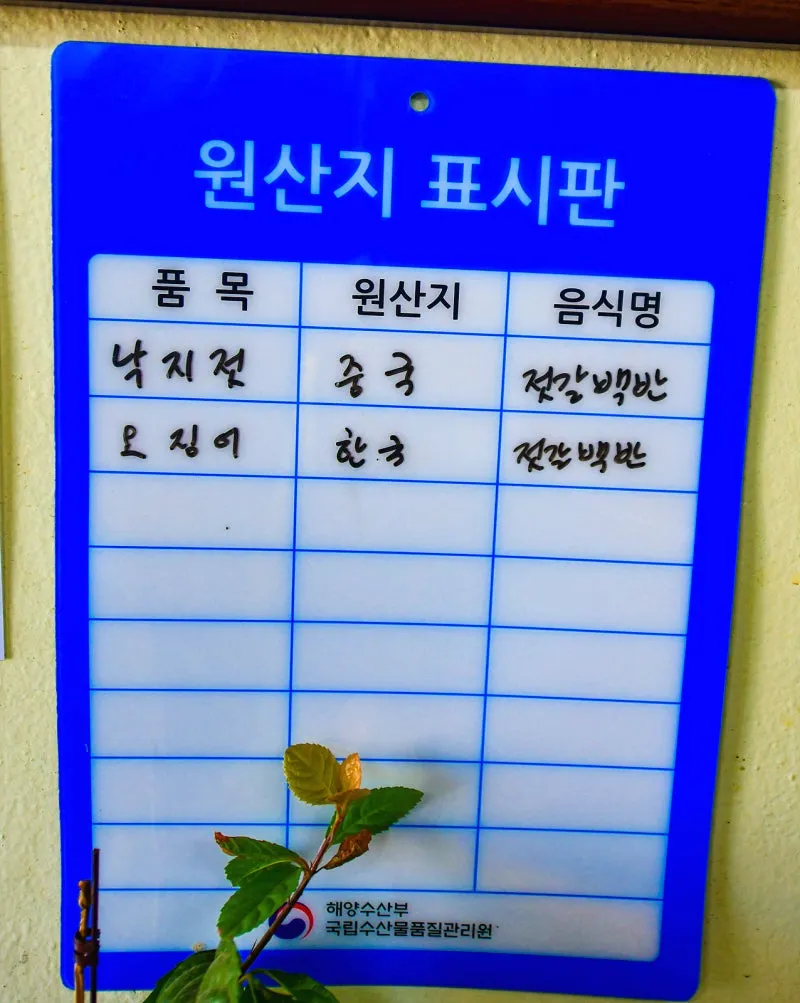 원산지 표시판
품 목 원산지 음식명
낙지젓 중국 젓갈백반
오징어 한국 젓갈백반
해양수산부
국립수산물품질관리원